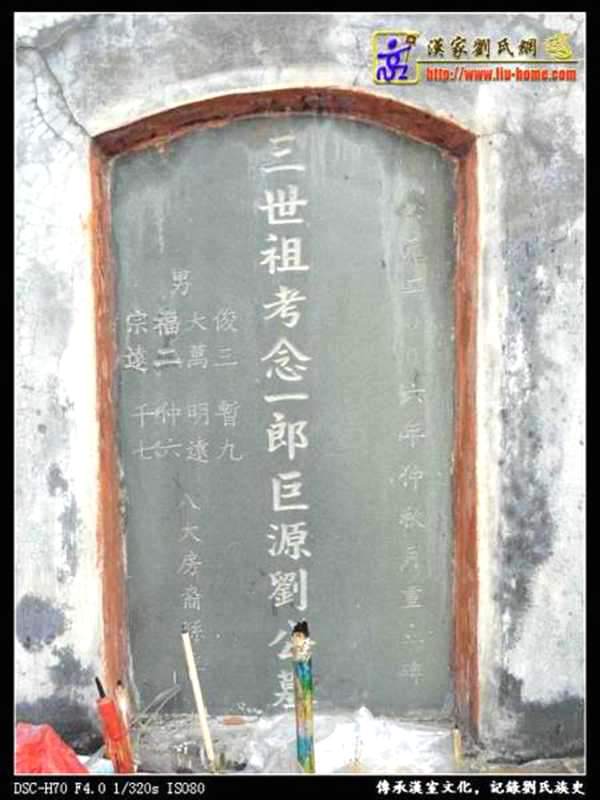 漢家劉氏網
http://www.liu-home.com
六年仲秋月重
三世祖考念一郎巨源劉公墓
男
俊三 暫九
大萬 明遠
福二 仲六
宗遠 千七
八大房裔孫
DSC-H70 F4.0 1/320s ISO80
傳承漢室文化，記錄劉氏族史